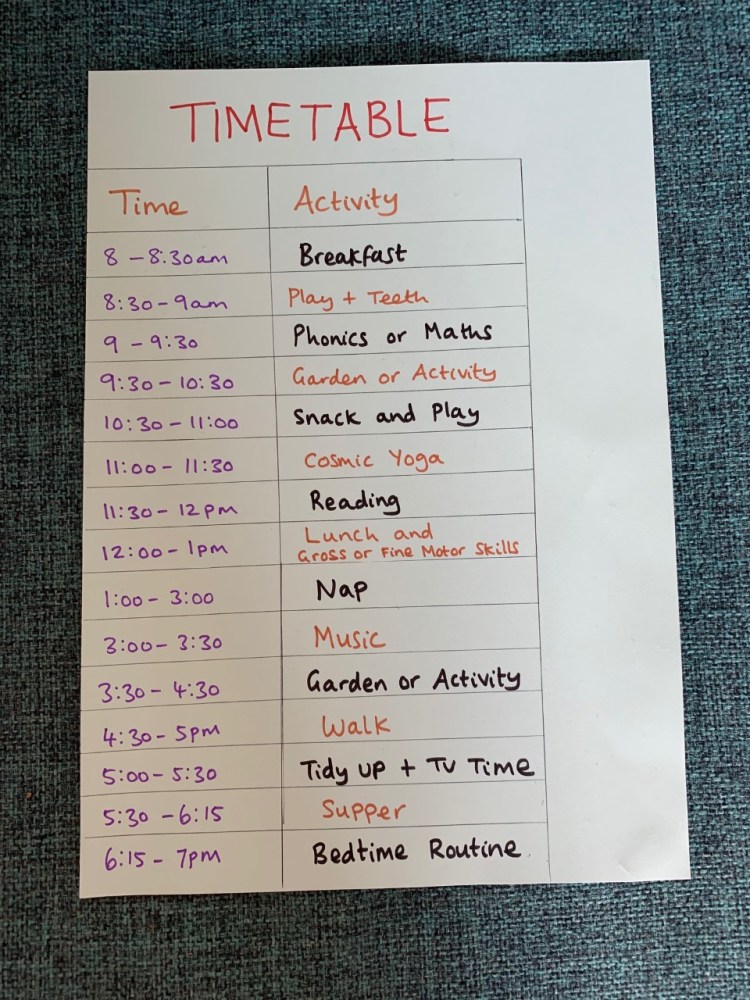 TIMETABLE
Time Activity
8 - 8:30am Breakfast
8:30 - 9am Play + Teeth
9 - 9:30 Phonics or Maths
9:30 - 10:30 Garden or Activity
10:30 - 11:00 Snack and Play
11:00 - 11:30 Cosmic Yoga
11:30 - 12pm Reading
12:00 - 1pm Lunch and
Gross or Fine Motor Skills
1:00 - 3:00 Nap
3:00 - 3:30 Music
3:30 - 4:30 Garden or Activity
4:30 - 5pm Walk
5:00 - 5:30 Tidy up + TV Time
5:30 - 6:15 Supper
6:15 - 7pm Bedtime Routine